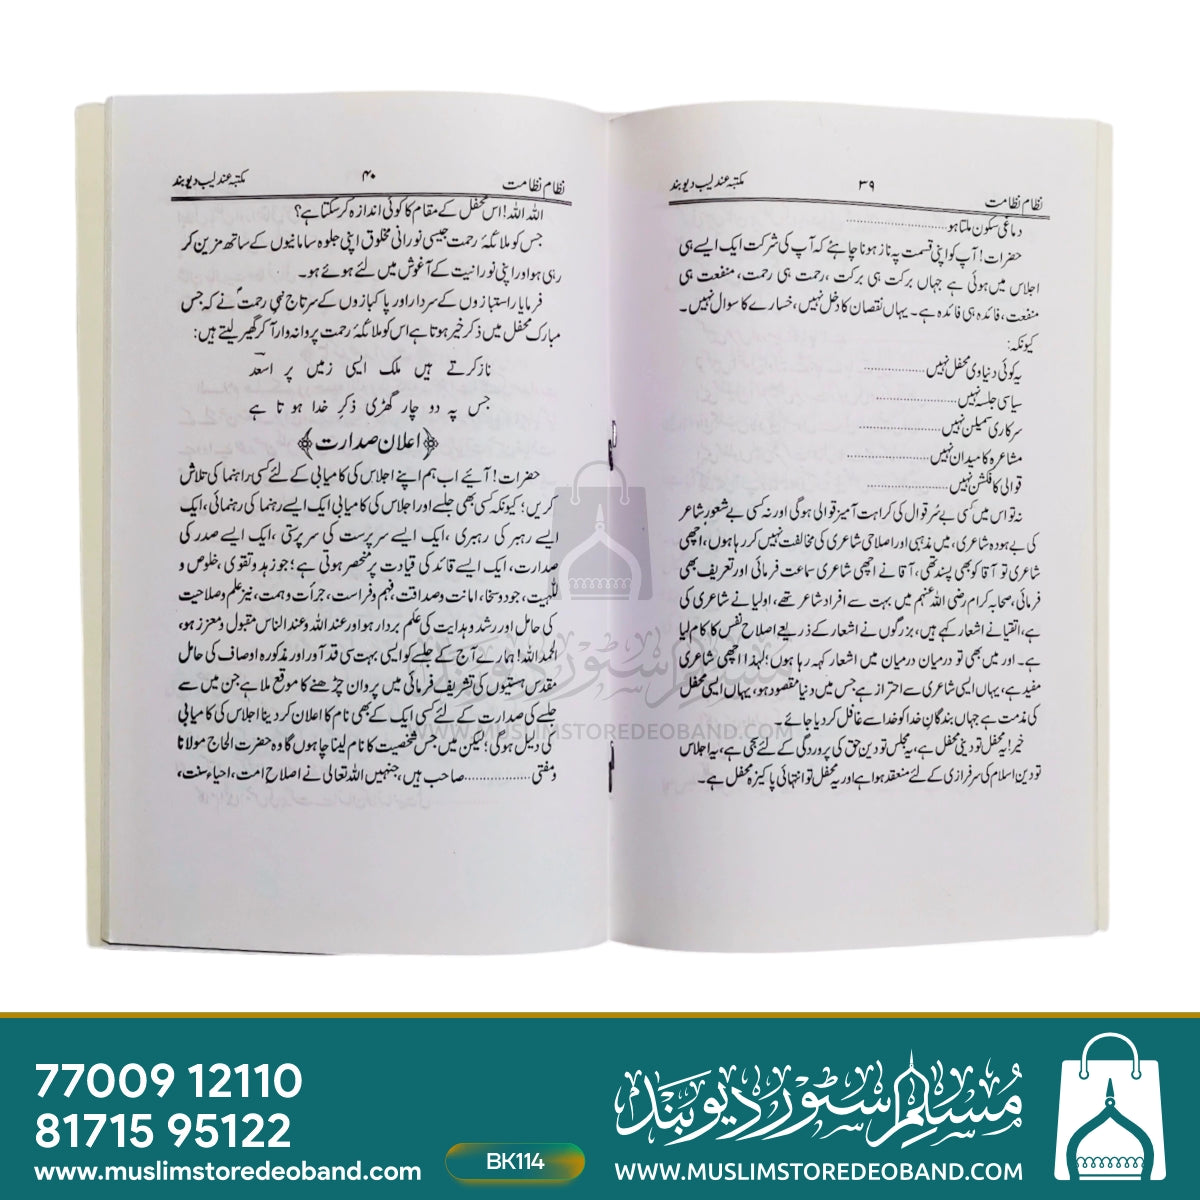 نظام نظامت ۳۹ مکتبہ عندلیب دیوبند
دماغی سکون ملتا ہو..............................
حضرات! آپ کو اپنی قسمت پہ ناز ہونا چاہئے کہ آپ کی شرکت ایک ایسے ہی
اجلاس میں ہوئی ہے جہاں برکت ہی برکت، رحمت ہی رحمت، منفعت ہی
منفعت، فائدہ ہی فائدہ ہے۔ یہاں نقصان کا دخل نہیں، خسارے کا سوال نہیں۔
کیونکہ:
یہ کوئی دنیاوی محفل نہیں..................
سیاسی جلسہ نہیں........................
سرکاری سمیلن نہیں........................
مشاعرہ کا میدان نہیں........................
قوالی کا فنکشن نہیں........................
نہ تو اس میں کسی بے سُر قوال کی کراہت آمیز قوالی ہوگی اور نہ کسی بے شعور شاعر
کی بے ہودہ شاعری، میں مذہبی اور اصلاحی شاعری کی مخالفت نہیں کر رہا ہوں، اچھی
شاعری تو آقا کو بھی پسند تھی، آقا نے اچھی شاعری سماعت فرمائی اور تعریف بھی
فرمائی، صحابہ کرام رضی اللہ عنہم میں بہت سے افراد شاعر تھے، اولیا نے شاعری کی
ہے، اتقیا نے اشعار کہے ہیں، بزرگوں نے اشعار کے ذریعے اصلاح نفس کا کام لیا
ہے۔ اور میں بھی تو درمیان درمیان میں اشعار کہہ رہا ہوں؛ لہٰذا اچھی شاعری
مفید ہے، یہاں ایسی شاعری سے احتراز ہے جس میں دنیا مقصود ہو، یہاں ایسی محفل
کی مذمت ہے جہاں بندگانِ خدا کو خدا سے غافل کر دیا جائے۔
خیر! یہ محفل تو دینی محفل ہے، یہ مجلس تو دین حق کی پروردگی کے لئے سجی ہے، یہ اجلاس
تو دین اسلام کی سرفرازی کے لئے منعقد ہوا ہے اور یہ محفل تو انتہائی پاکیزہ محفل ہے۔
نظام نظامت ۴۰ مکتبہ عندلیب دیوبند
اللہ اللہ! اس محفل کے مقام کا کوئی اندازہ کر سکتا ہے؟
جس کو ملائکۂ رحمت جیسی نورانی مخلوق اپنی جلوہ سامانیوں کے ساتھ مزین کر
رہی ہو اور اپنی نورانیت کے آغوش میں لئے ہوئے ہو۔
فرمایا راستبازوں کے سردار اور پاکبازوں کے سرتاج نبی رحمتؐ نے کہ جس
مبارک محفل میں ذکر خیر ہوتا ہے اس کو ملائکۂ رحمت پروانہ وار آ کر گھیر لیتے ہیں:
ناز کرتے ہیں ملک ایسی زمیں پر اسعد
جس پہ دو چار گھڑی ذکرِ خدا ہوتا ہے
﴿اعلان صدارت﴾
حضرات! آئیے اب ہم اپنے اجلاس کی کامیابی کے لئے کسی راہنما کی تلاش
کریں؛ کیونکہ کسی بھی جلسے اور اجلاس کی کامیابی ایک ایسے رہنما کی رہنمائی، ایک
ایسے رہبر کی رہبری، ایک ایسے سرپرست کی سرپرستی، ایک ایسے صدر کی
صدارت، ایک ایسے قائد کی قیادت پر منحصر ہوتی ہے؛ جو زہد و تقویٰ، خلوص و
للہیت، جود و سخا، امانت و صداقت، فہم و فراست، جرأت و ہمت، نیز علم و صلاحیت
کی حامل اور رشد و ہدایت کی عَلم بردار ہو اور عند اللہ و عند الناس مقبول و معزز ہو،
الحمد للہ! ہمارے آج کے جلسے کو ایسی بہت سی قد آور اور مذکورہ اوصاف کی حامل
مقدس ہستیوں کی تشریف فرمائی میں پروان چڑھنے کا موقع ملا ہے جن میں سے
جلسے کی صدارت کے لئے کسی ایک کے بھی نام کا اعلان کر دینا اجلاس کی کامیابی
کی دلیل ہوگی؛ لیکن میں جس شخصیت کا نام لینا چاہوں گا وہ حضرت الحاج مولانا
و مفتی..................صاحب ہیں، جنہیں اللہ تعالی نے اصلاح امت، احیاء سنت،
مسلم سٹور دیوبند
WWW.MUSLIMSTOREDEOBAND.COM
77009 12110
81715 95122
www.muslimstoredeoband.com
BK114
مسلم سٹور دیوبند
WWW.MUSLIMSTOREDEOBAND.COM